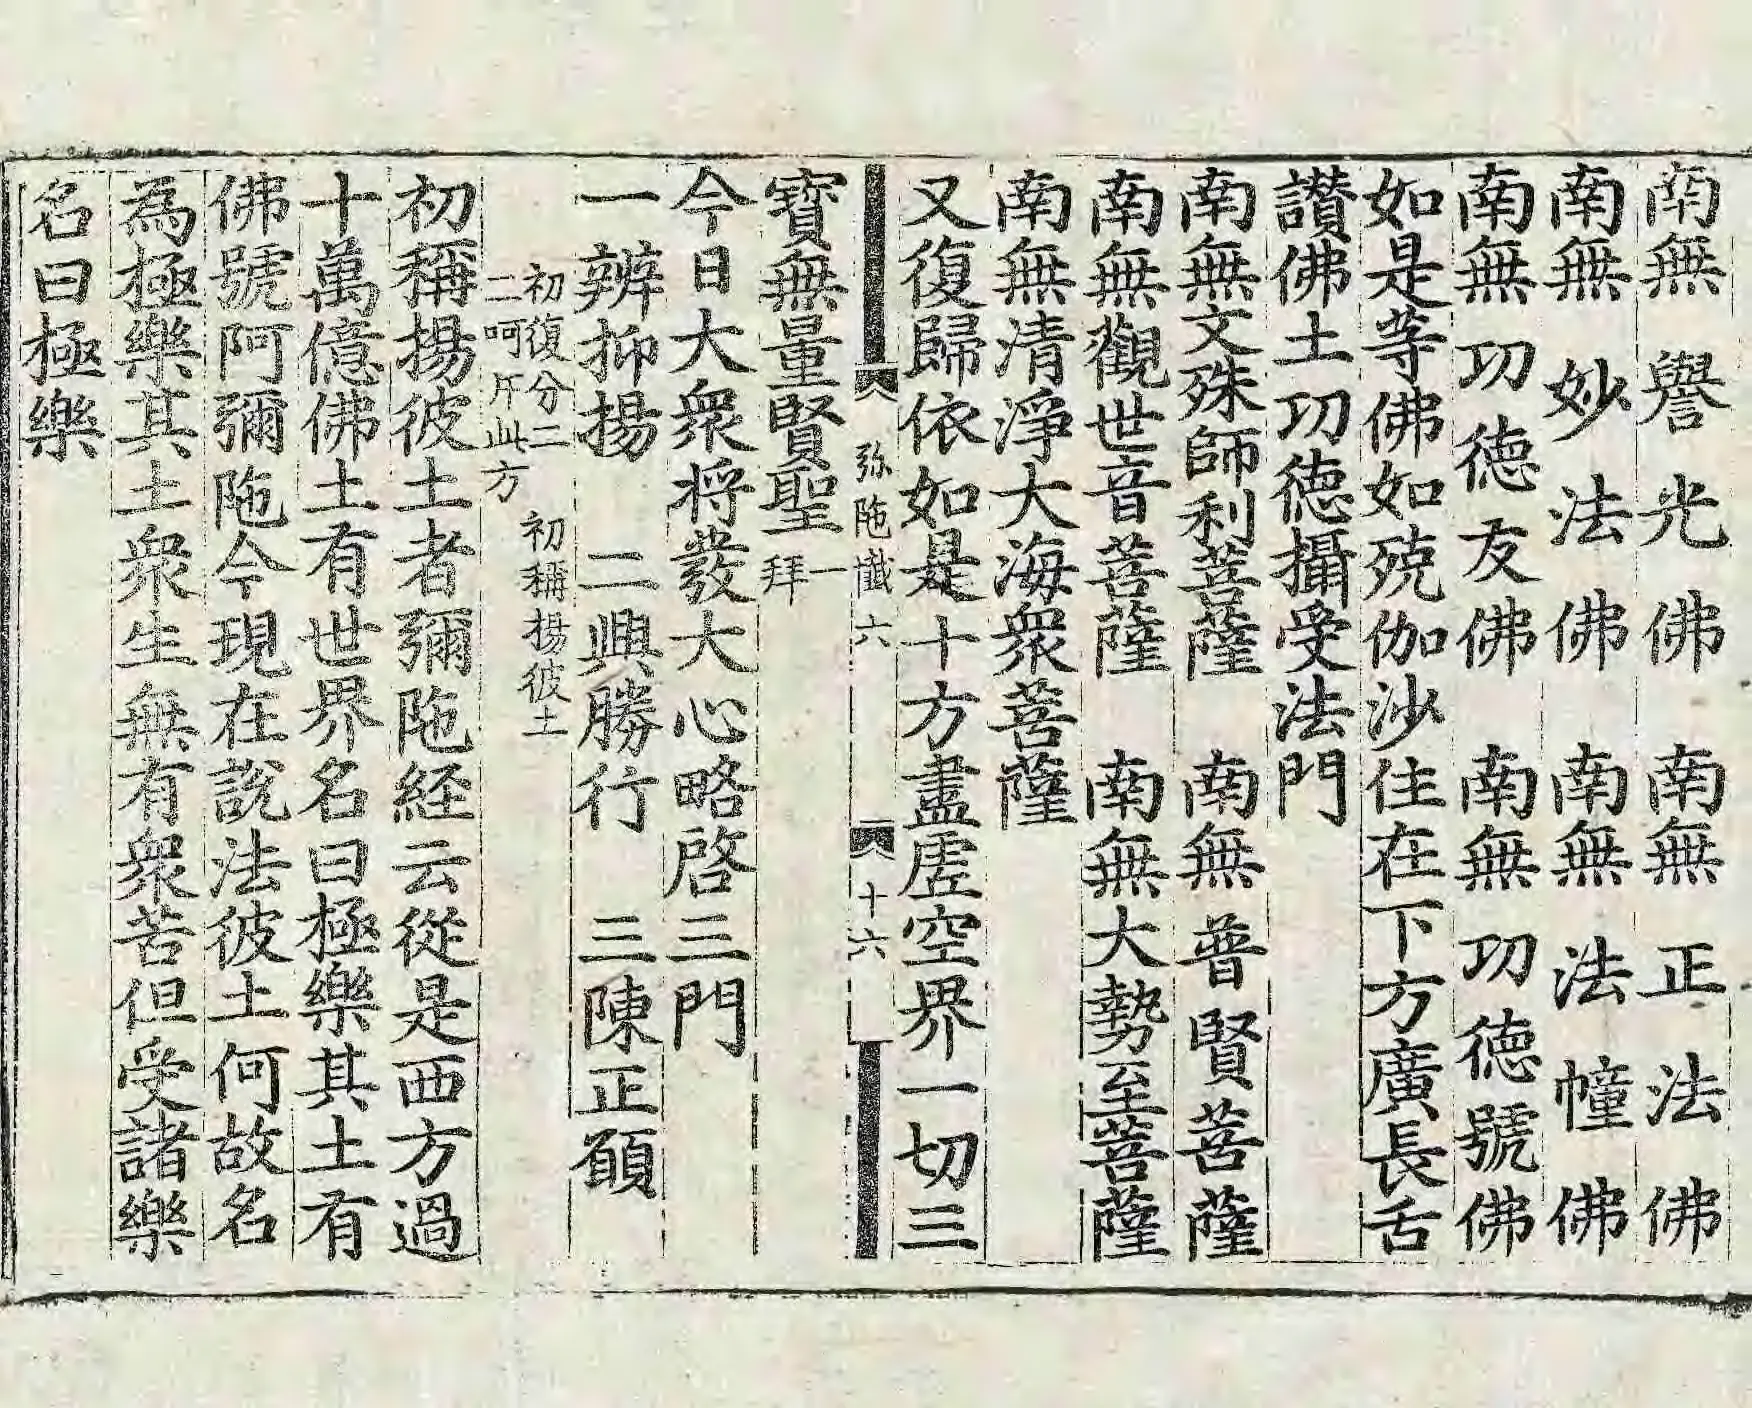 南無譽光佛　南無正法佛
南無妙法佛　南無法幢佛
南無功德友佛　南無功德號佛
如是等佛如殑伽沙住在下方廣長舌
讃佛土功德攝受法門
南無文殊師利菩薩　南無普賢菩薩
南無觀世音菩薩　南無大勢至菩薩
南無清淨大海衆菩薩
又復歸依如是十方盡虛空界一切三
弥陁懺六　十六
寶無量賢聖一拜
今日大衆将發大心略啓三門
一辨抑揚　二興勝行　三陳正願
初復分二　初稱揚彼土
二呵斥此方
初稱揚彼土者彌陁経云從是西方過
十萬億佛土有世界名曰極樂其土有
佛號阿彌陁今現在説法彼土何故名
為極樂其土衆生無有衆苦但受諸樂
名曰極樂